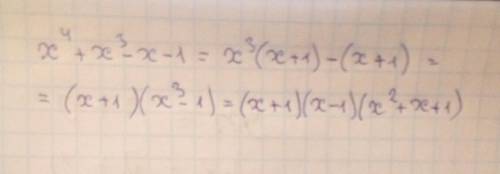 x⁴ + x³ - x - 1 = x³(x+1) - (x+1) =
= (x+1)(x³-1) = (x+1)(x-1)(x²+x+1)